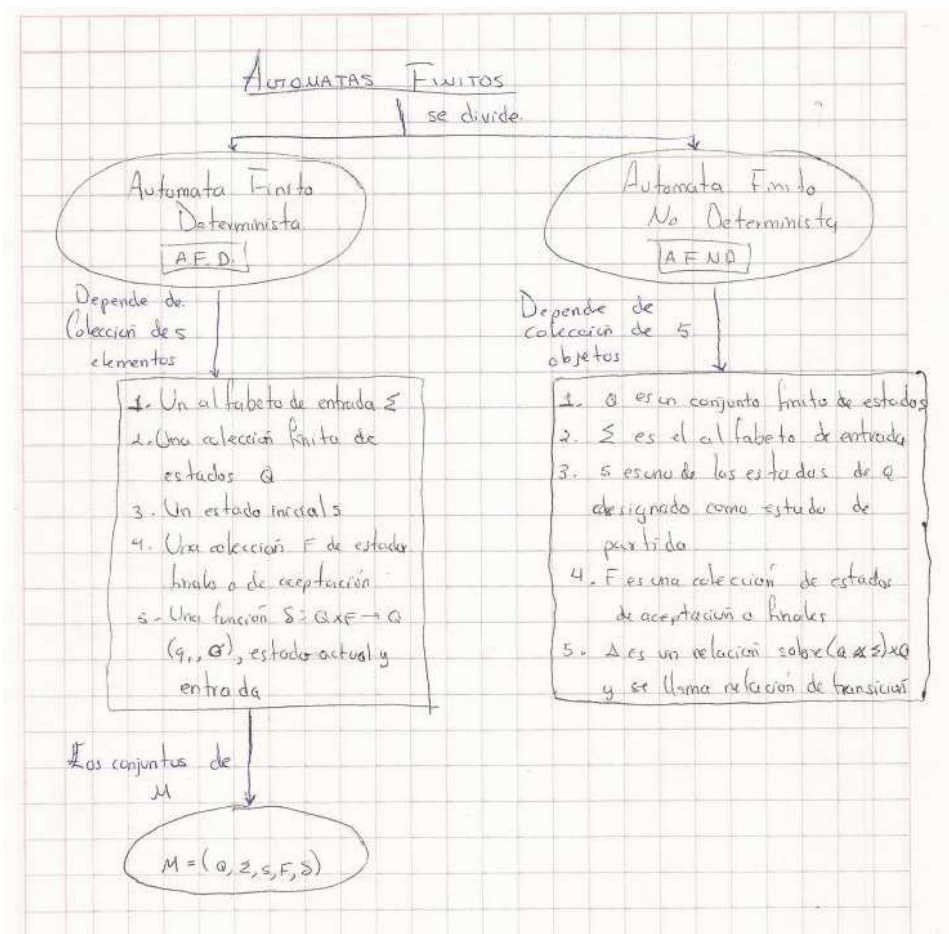 AUTOMATAS FINITOS
se divide.
Automata Finito
Determinista
A.F.D.
Depende de.
Colección de 5
elementos
1. Un alfabeto de entrada Σ
2. Una colección finita de
estados Q
3. Un estado inicial s
4. Una colección F de estados
finales o de aceptación
5- Una función δ: QxF → Q
(q,, σ), estado actual y
entrada
Los conjuntos de
M
M = (Q, Σ, s, F, δ)
Automata Finito
No Determinista
A F N D
Depende de
colección de 5
objetos
1. Q es un conjunto finito de estados
2. Σ es el alfabeto de entrada
3. s es uno de los estados de Q
designado como estado de
partida
4. F es una colección de estados
de aceptación o finales
5. Δ es un relación sobre (Q x Σ) x Q
y se llama relación de transición